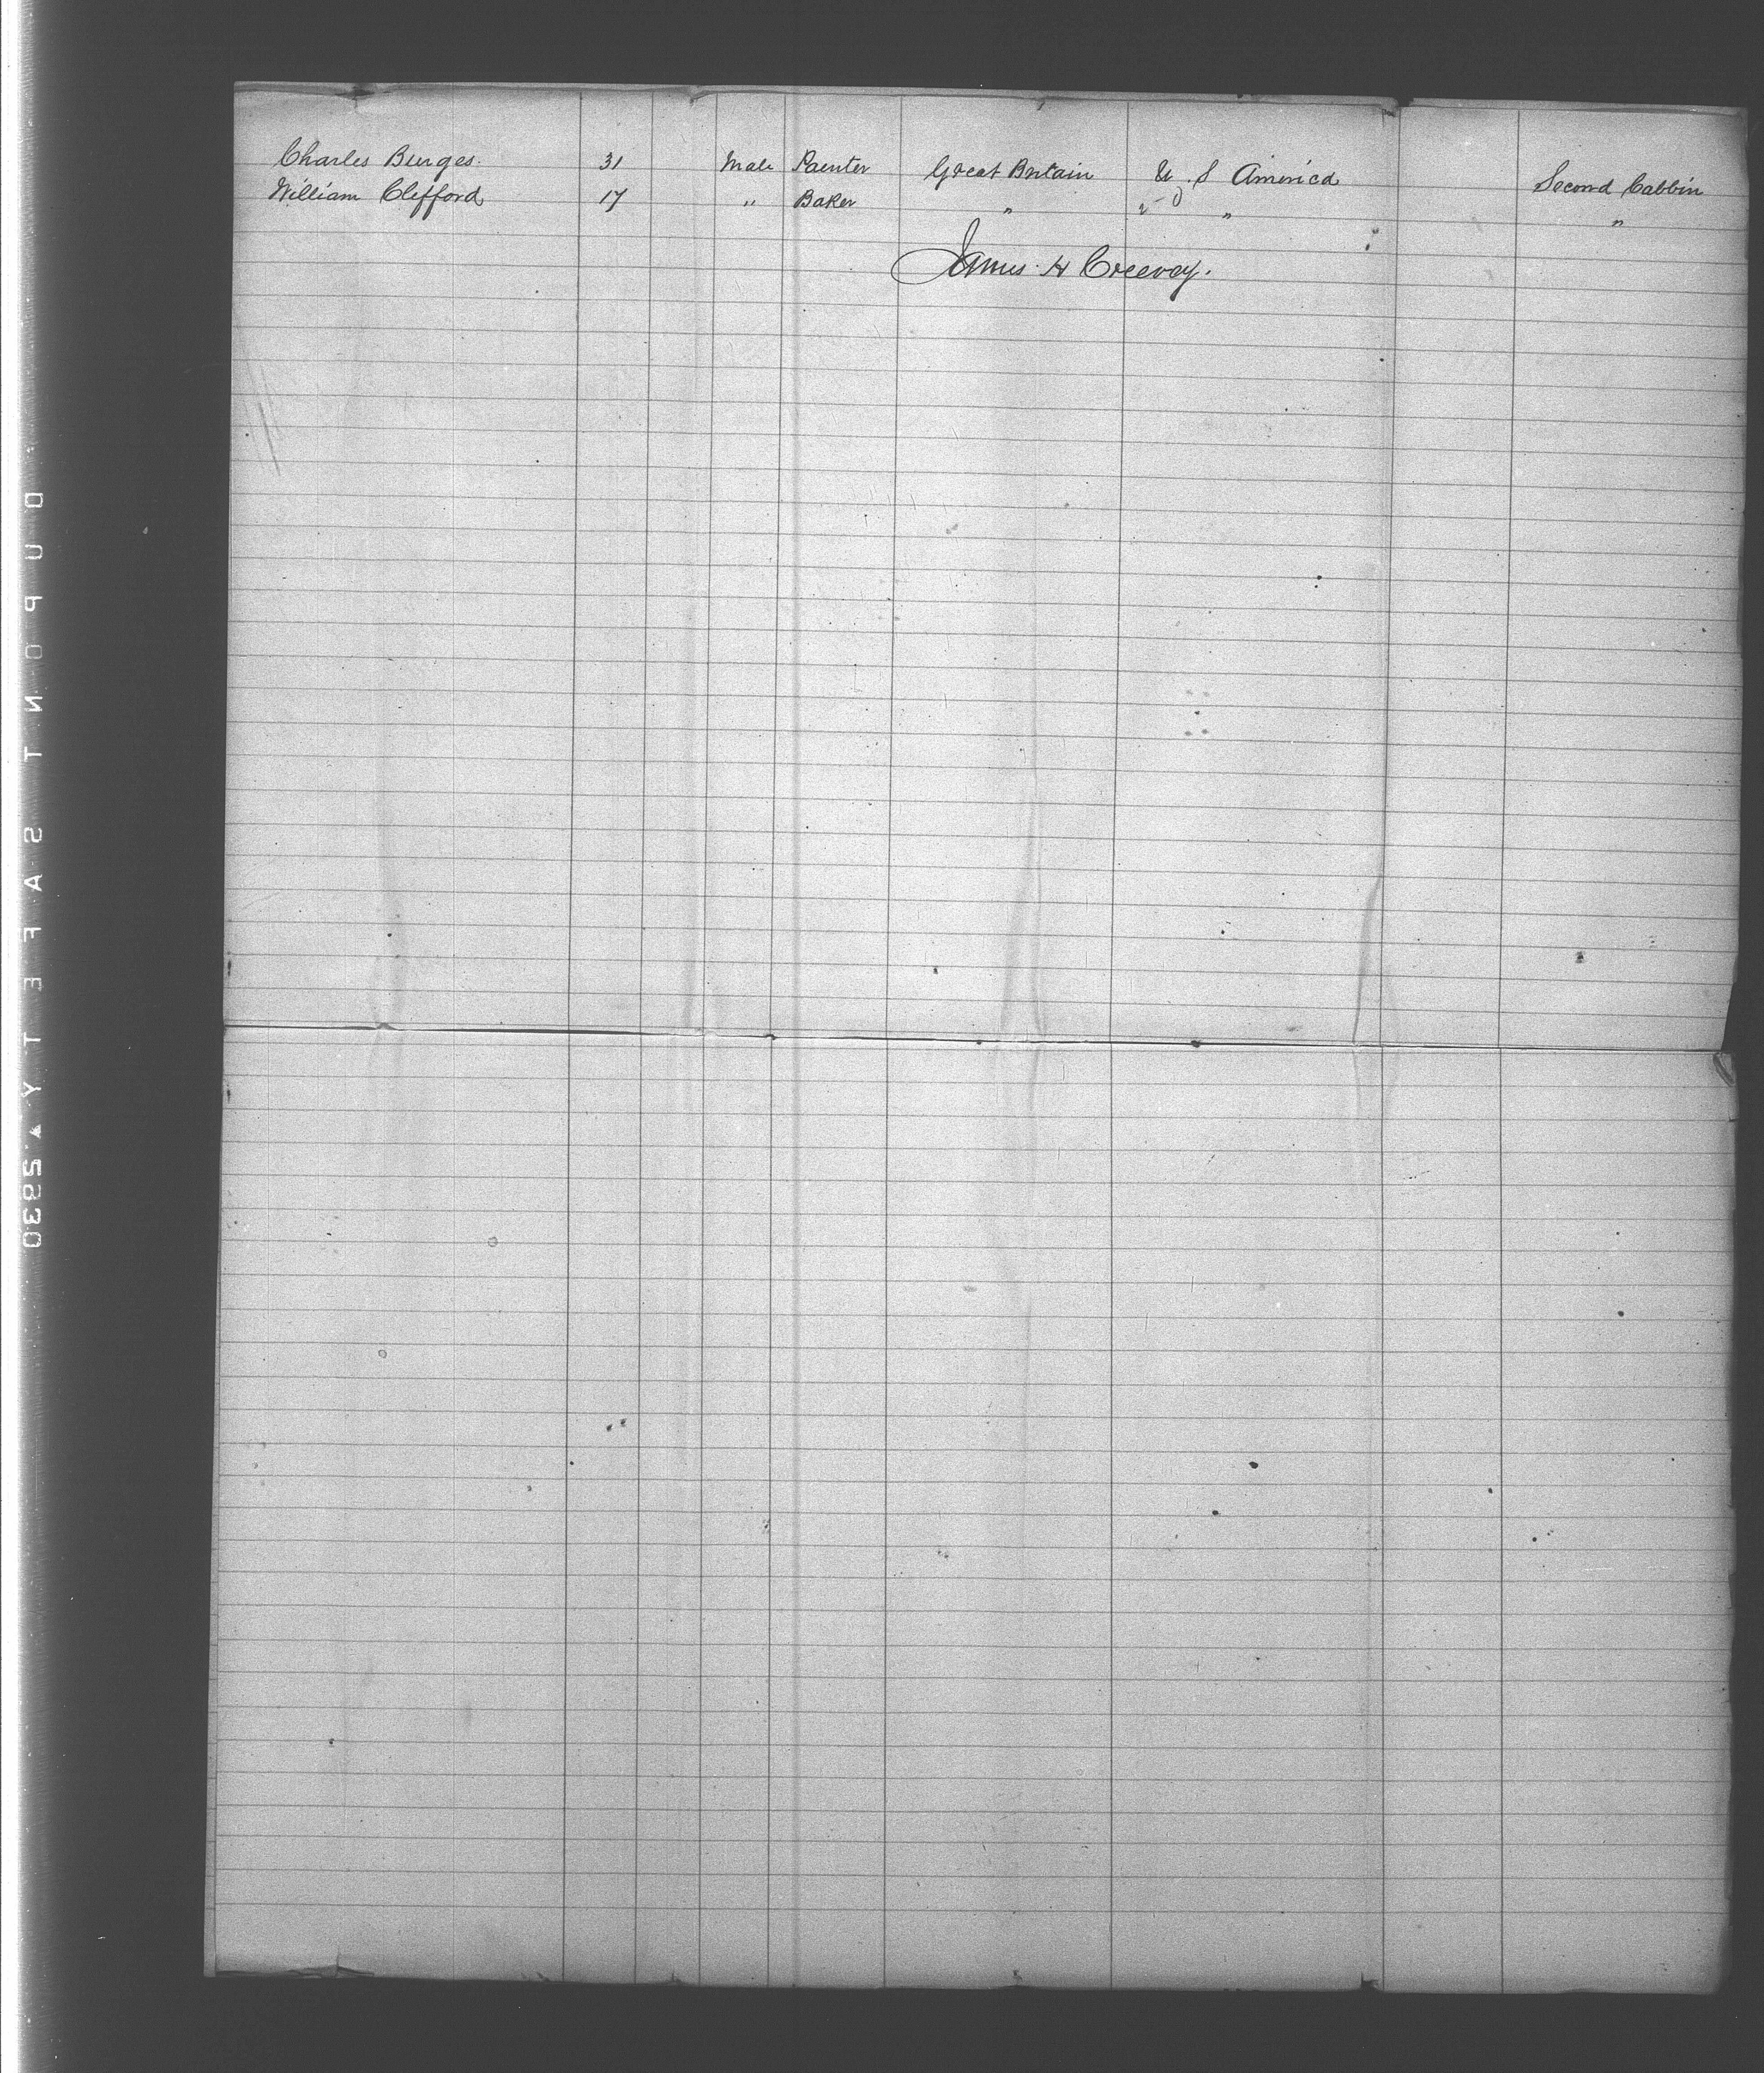 Charles Burges. 31 Male Painter Great Britain U. S America Second Cabbin
William Clifford 17 " Baker " " "
James H Creevey.
DUPONT SAFETY 2930